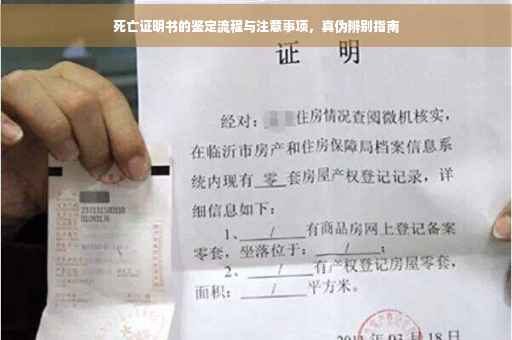 死亡证明书的鉴定流程与注意事项，真伪辨别指南
证 明
经对：住房情况查阅微机核实，
在临沂市房产和住房保障局档案信息系
统内现有 零 套房屋产权登记记录，详
细信息如下：
1、 / 有商品房网上登记备案
零套，坐落位于： / ；
2、 / 有产权登记房屋零套，
面积： / 平方米。